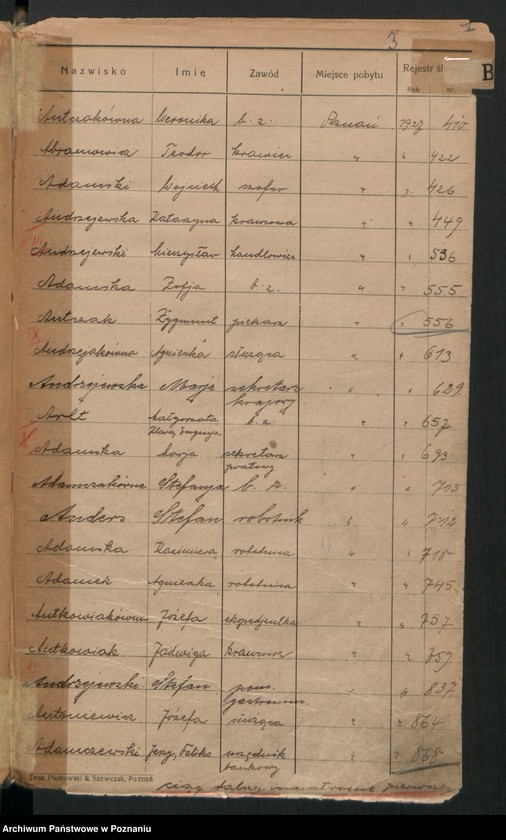 3 1
Nazwisko Imię Zawód Miejsce pobytu Rejestr śl
Rok nr.
B
Antczakówna Weronika b. z. Poznań 1927 410
Abramowicz Teodor krawiec " " 422
Adamski Wojciech szofer " " 426
Andrzejewska Katarzyna krawcowa " " 449
Andrzejewski Mieczysław handlowiec " " 536
Adamska Zofja b. z. " " 555
Antczak Zygmunt piekarz " " 556
Andrzejakówna Agnieszka służąca " " 613
Andrzejewska Marja sekretarz " " 629
krajowy
Arlt Małgorzata b. z. " " 657
Klara Eugenja
Adamska Marja sekretarz " " 693
Adamczakówna Stefanja b. z. " " 713
Anders Stefan robotnik " " 712
Adamska Kazimiera robotnica " " 718
Adamek Agnieszka robotnica " " 745
Antkowiakówna Józefa ekspedjentka " " 757
Antkowiak Jadwiga krawcowa " " 757
Andrzejewski Stefan pom. " " 837
Gastronom.
Antoniewicz Józefa służąca " " 864
Adamczewski Jerzy, Feliks urzędnik " " 868
bankowy
Druk. Piotrowski & Szewczak, Poznań
ciąg dalszy na stronie pierwszej
Archiwum Państwowe w Poznaniu